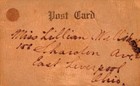 Post Card
Miss Lillian Mc
Carolin Ave
East Liverpool
Ohio.